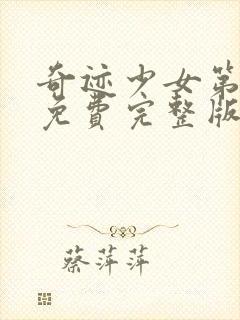 奇迹少女第
免費完整版
蔡萍萍